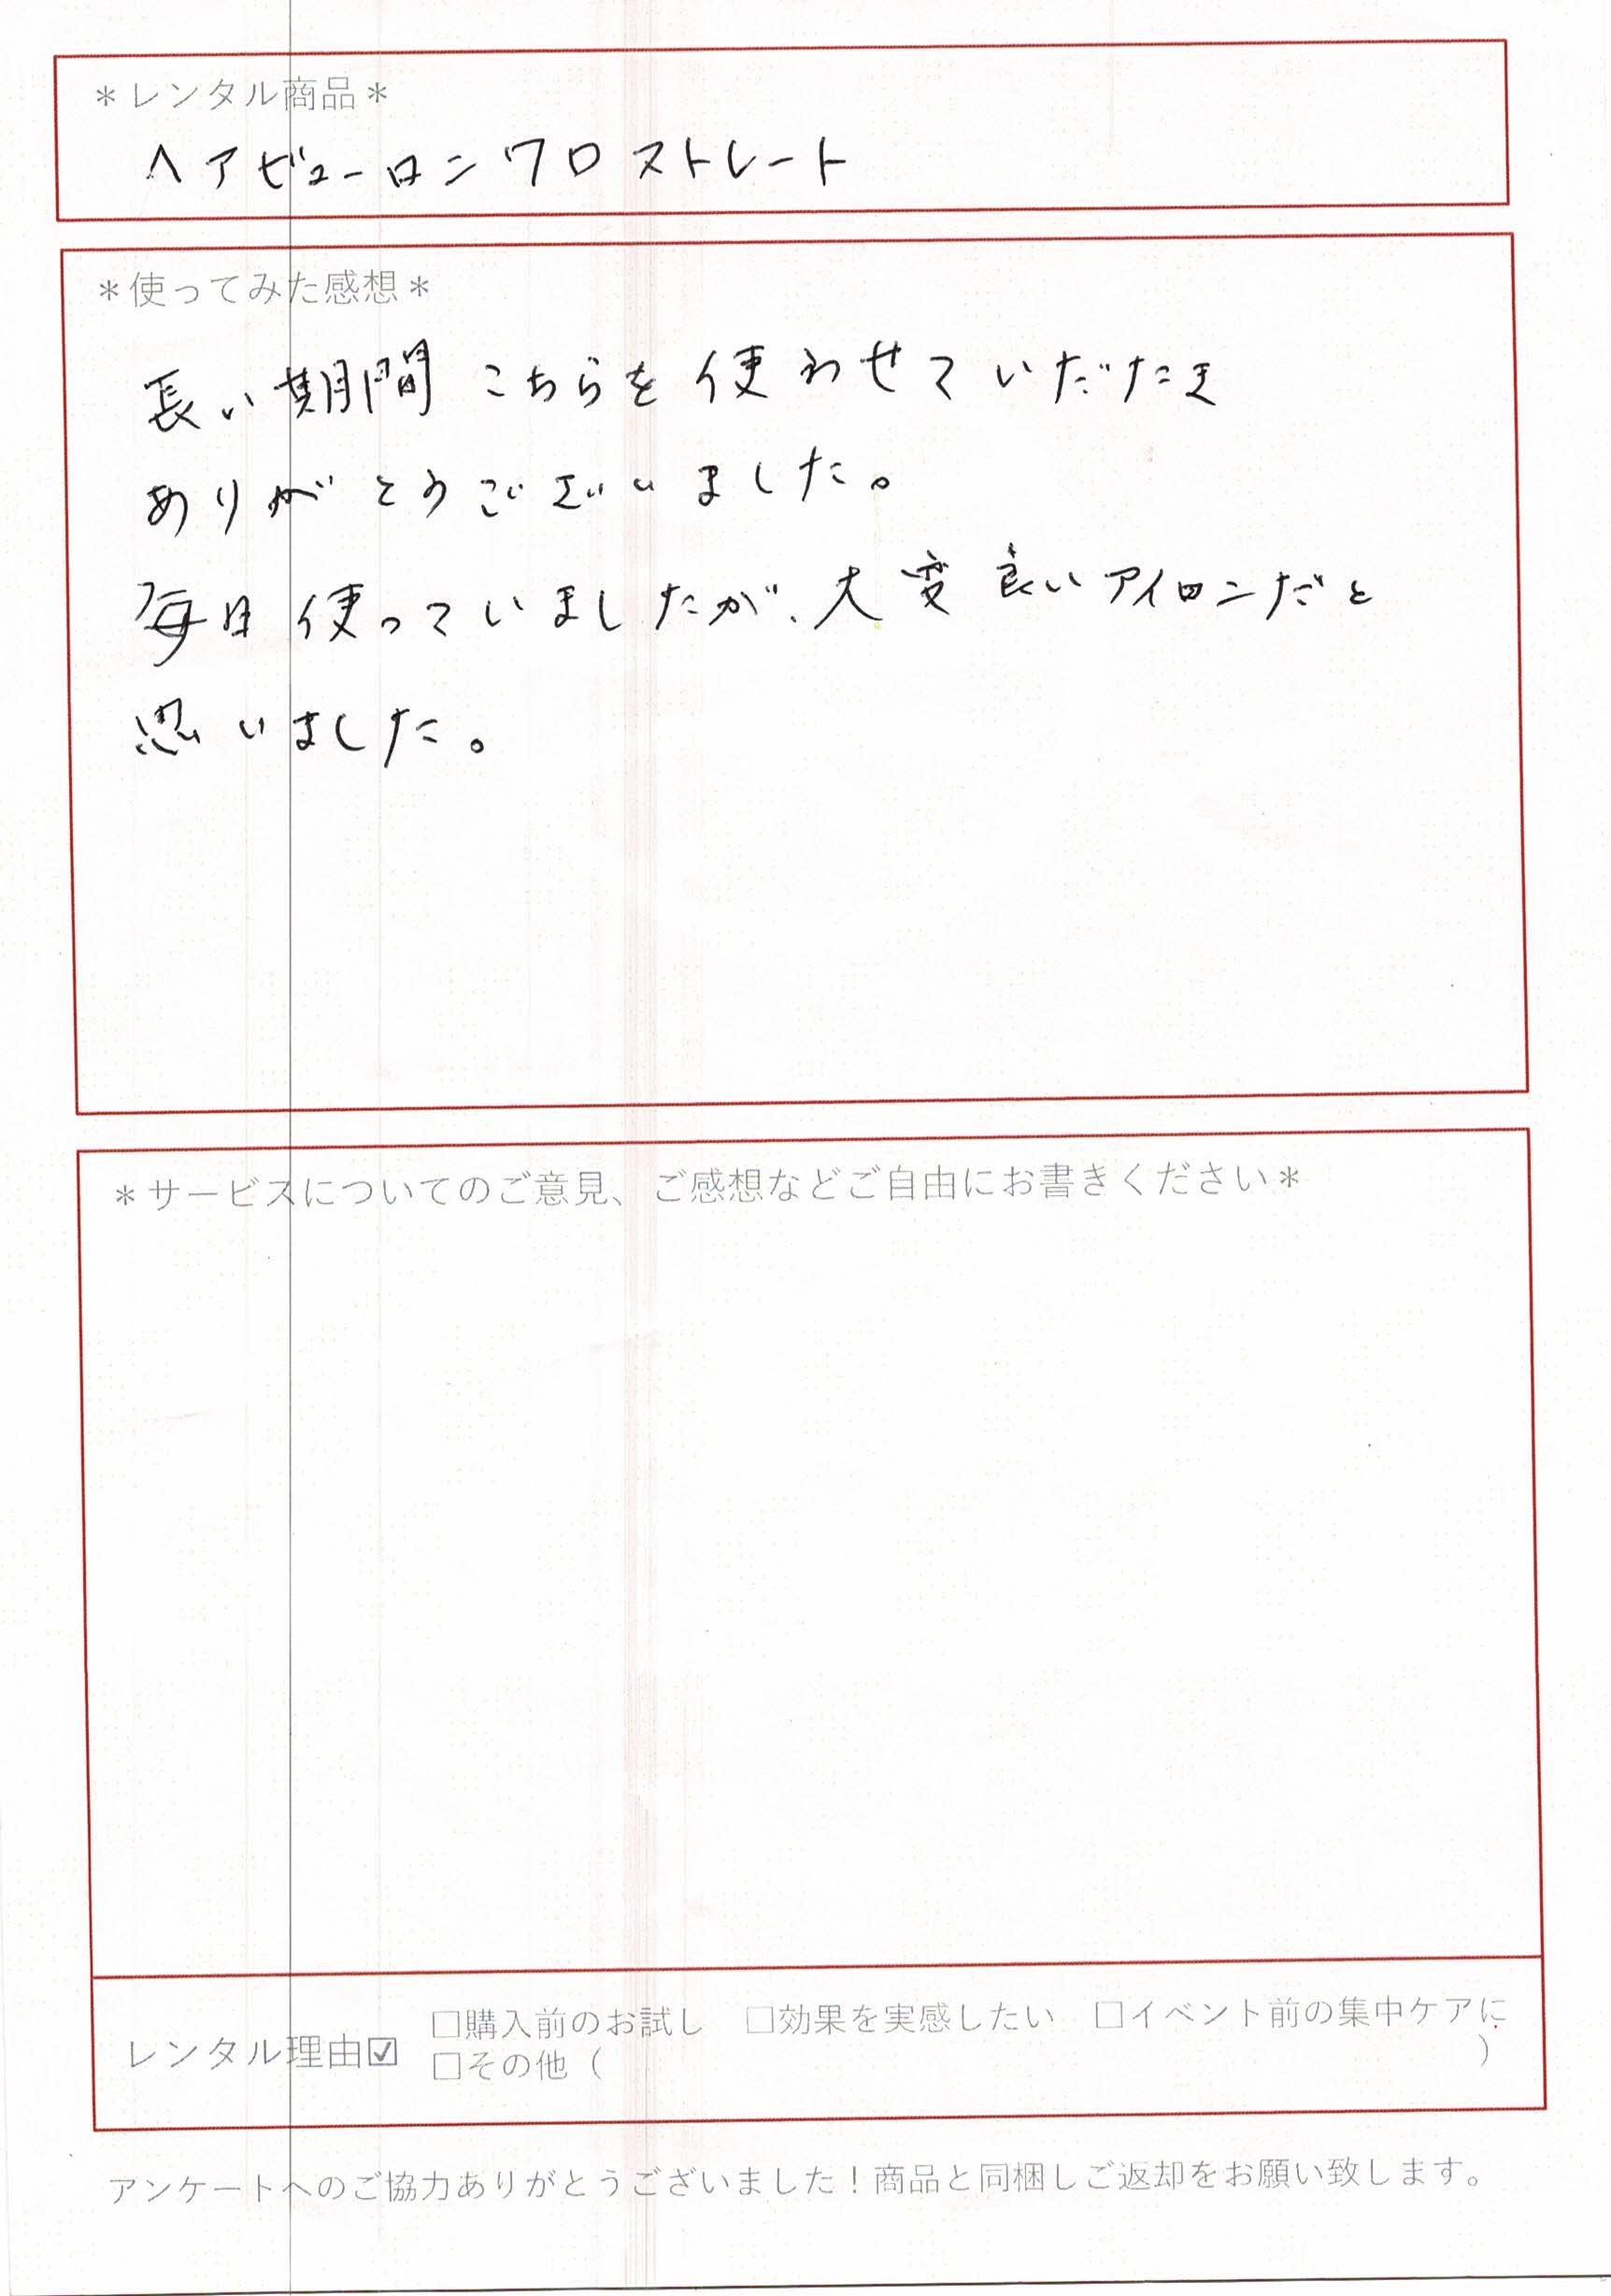 ＊レンタル商品＊
ヘアビューロン 7D ストレート
＊使ってみた感想＊
長い期間 こちらを 使わせていだたき
ありがとうございました。
毎日 使っていましたが、大変 良いアイロンだと
思いました。
＊サービスについてのご意見、ご感想などご自由にお書きください＊
レンタル理由☑
□購入前のお試し　□効果を実感したい　□イベント前の集中ケアに
□その他（　　　　　　　　　　　　　　　　　　）
アンケートへのご協力ありがとうございました！商品と同梱しご返却をお願い致します。